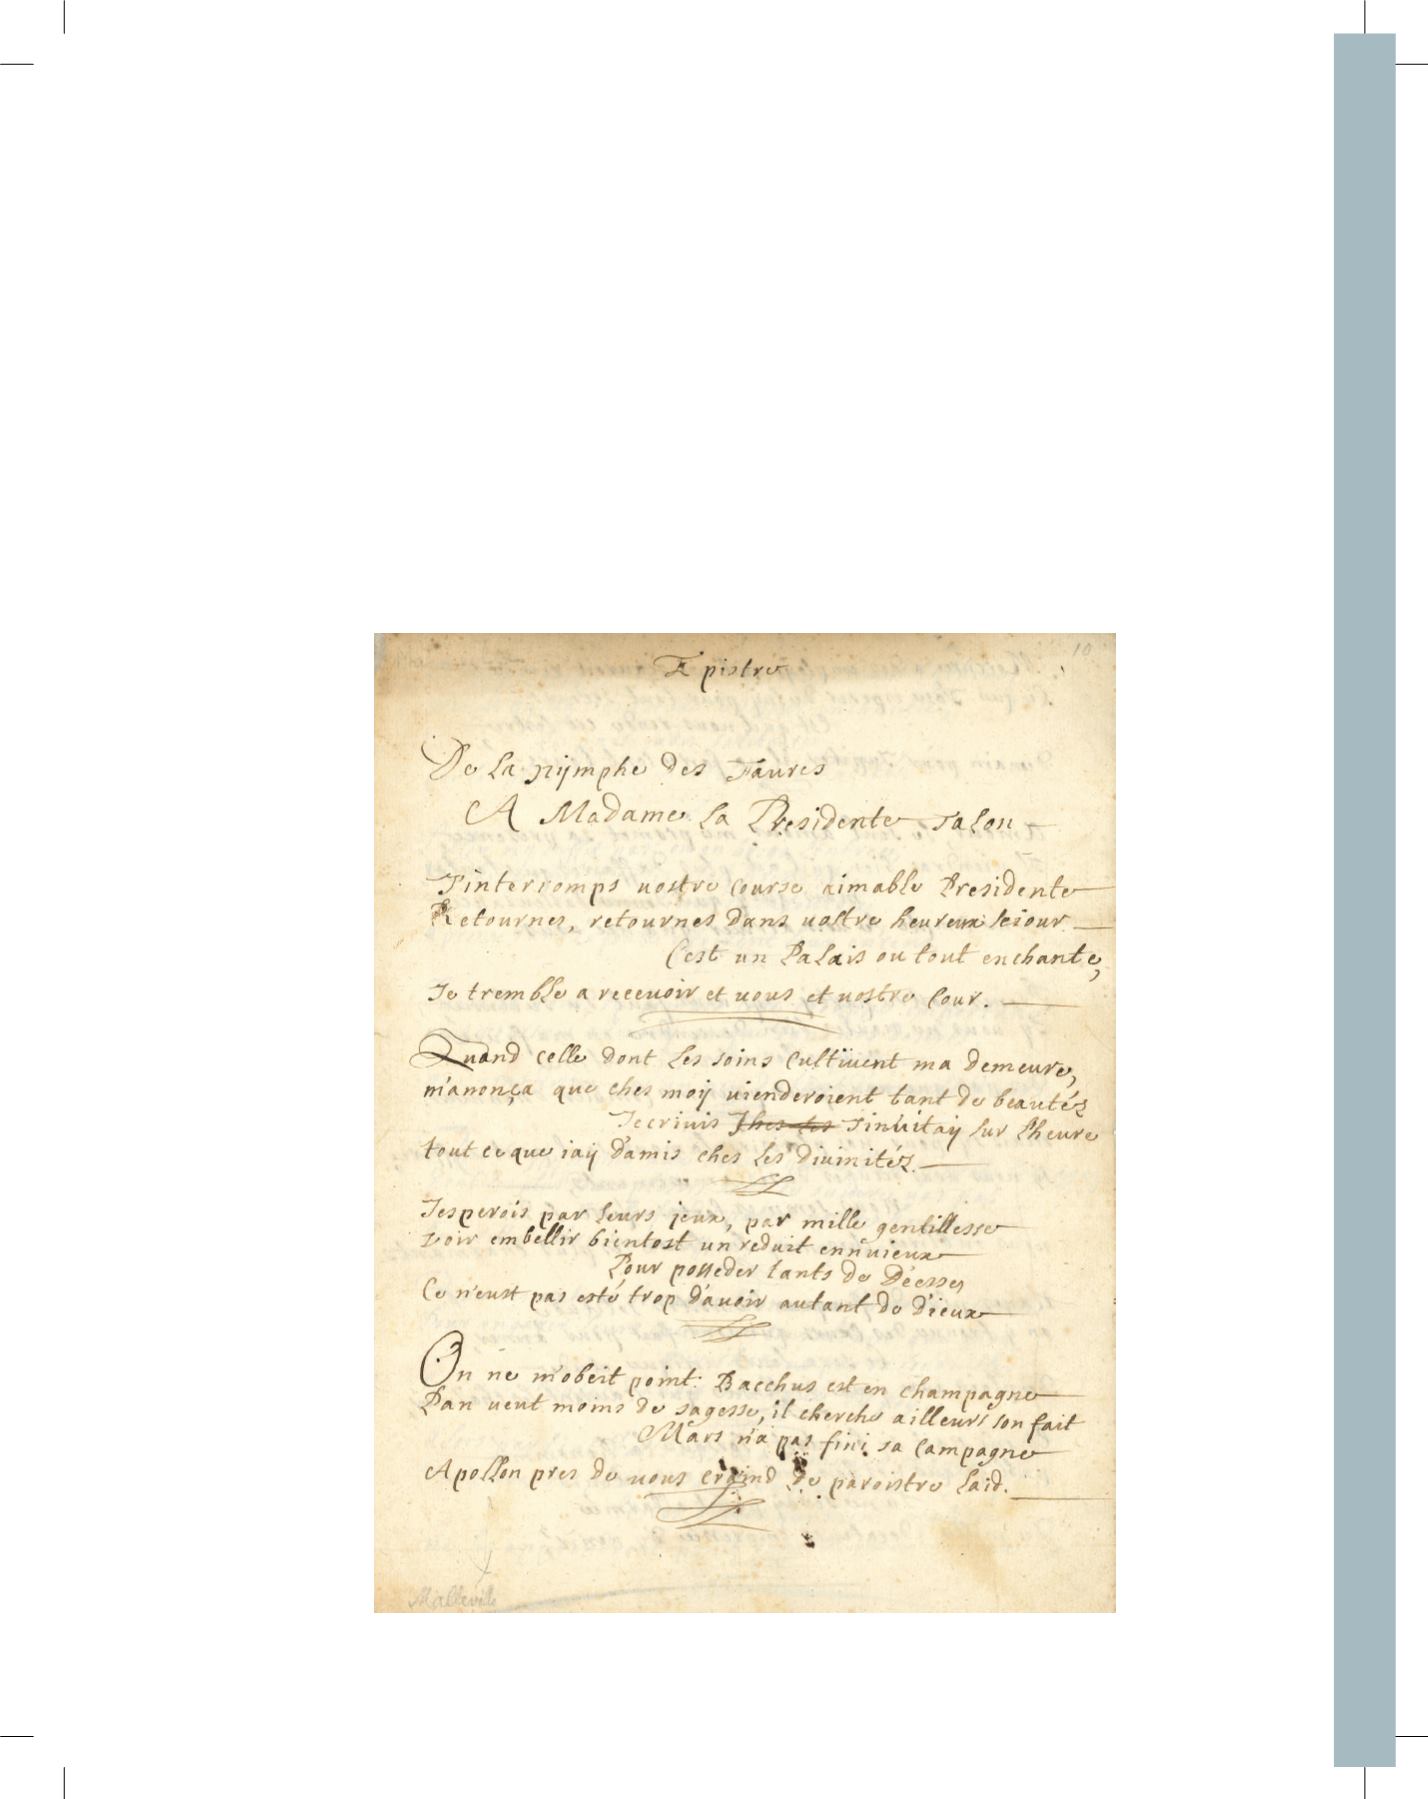 10
Epistre
De la nÿmphe des Faures
A Madame la Presidente Talon
J'interromps vostre course aimable Presidente
Retournes, retournes dans vostre heureux seiour
C'est un Palais ou tout enchante,
Je tremble a recevoir et vous et vostre Cour.
Quand celle dont les soins cultivent ma demeure,
m'anonça que ches moÿ vienderoient tant de beautéz
Jecrivis J'invitaÿ sur l'heure
tout ce que iaÿ d'amis ches les divinitéz.
Jesperois par leurs jeux, par mille gentillesse
voir embellir bientost un reduit ennuieux
Pour posseder tants de Déesses
Ce n'eust pas esté trop d'avoir autant de dieux
On ne m'obeit point: Bacchus est en champagne
Pan veut moins de sagesse, il cherche ailleurs son fait
Mars n'a pas fini sa Campagne
Apollon pres de vous craind de paroistre laid.
Malleville